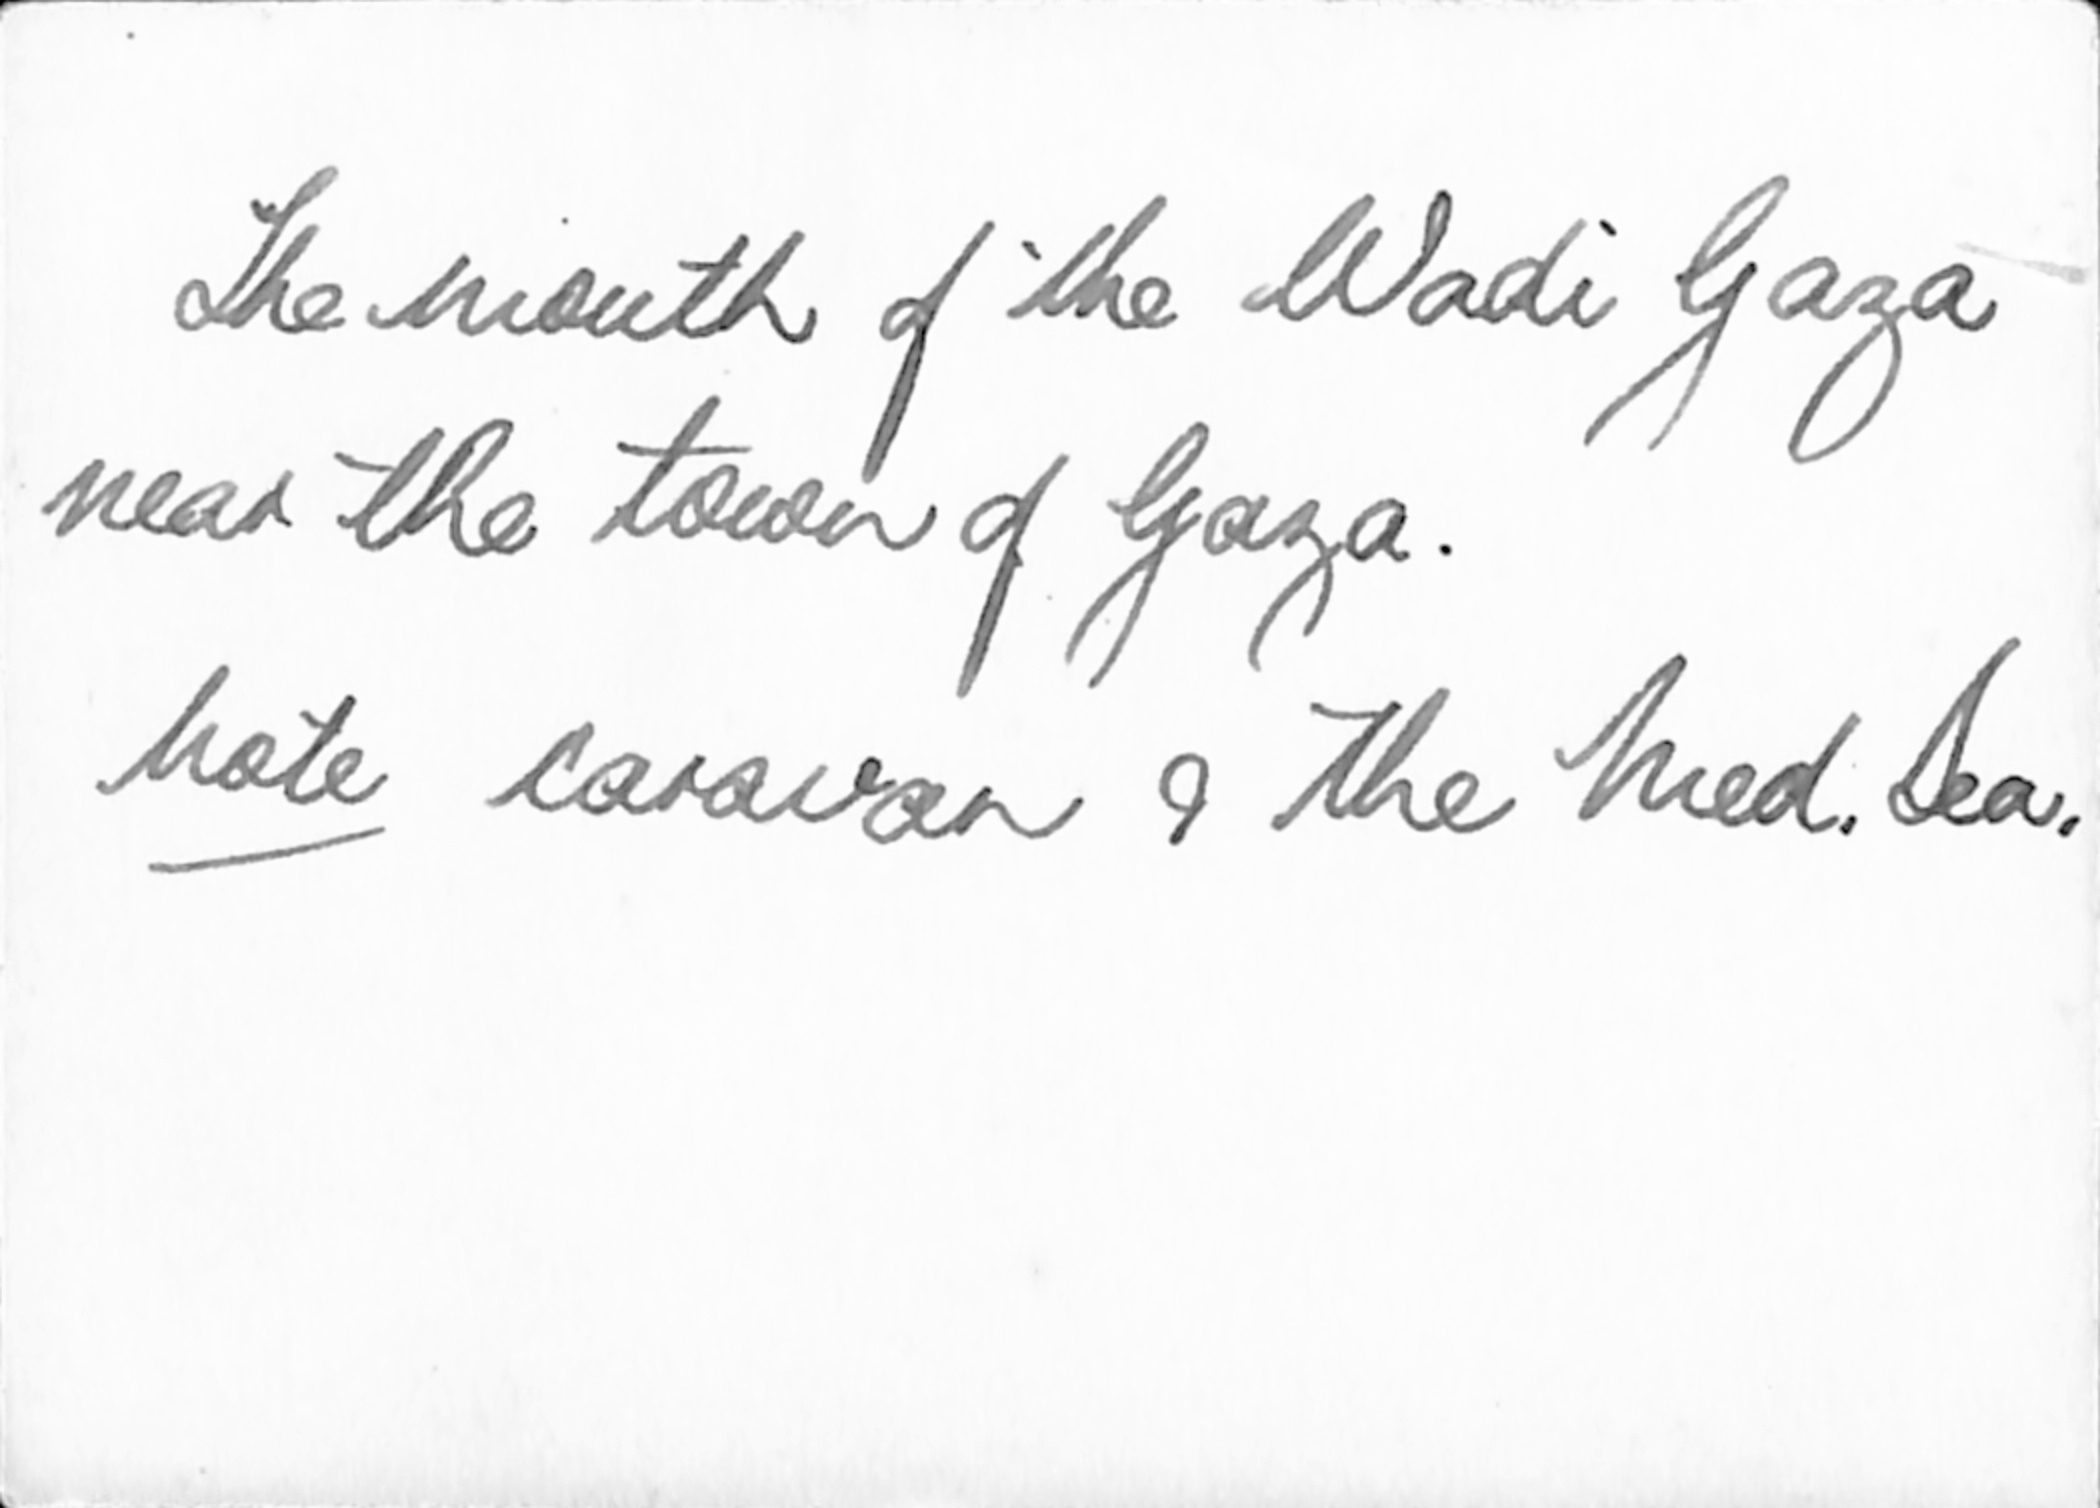 The mouth of the Wadi Gaza
near the town of Gaza.
Note caravan & the Med. Sea.